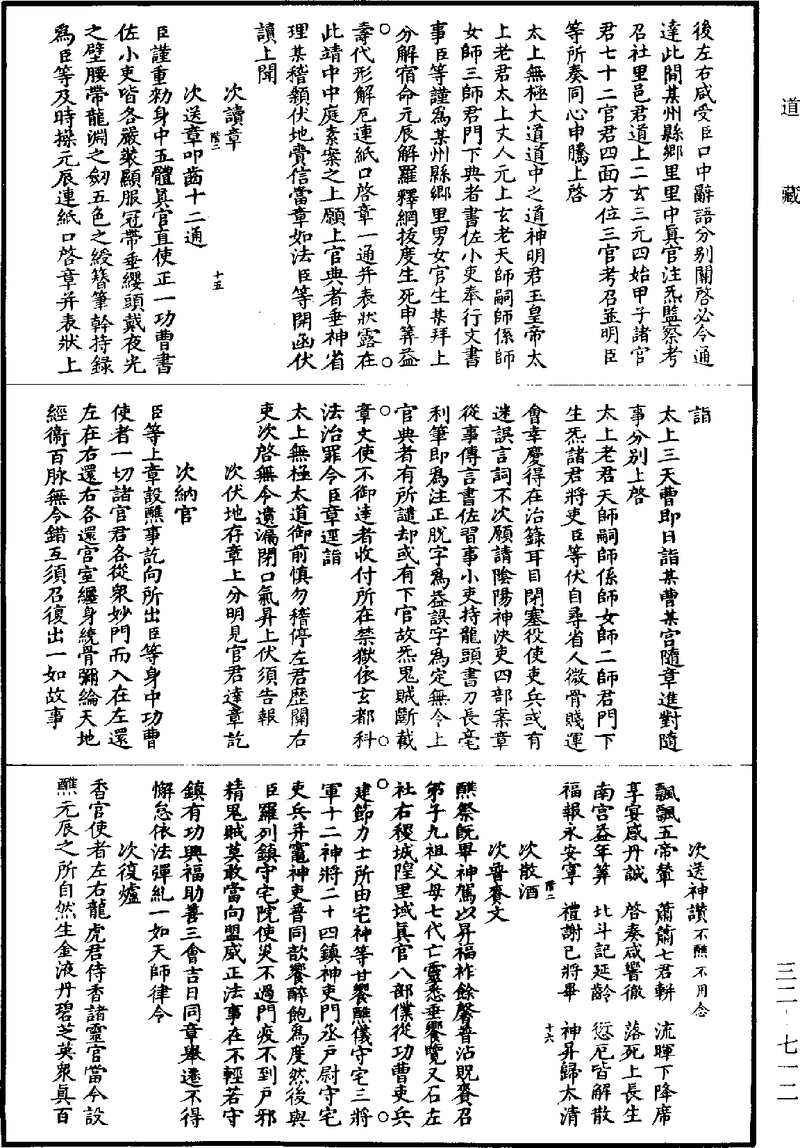 道藏
三二·七一二
後左右咸受臣口中辭語分别關啓必令通
達此間某州縣鄉里里中真官注炁監察考
召社里邑君道上二玄三元四始甲子諸官
君七十二官君四面方位三官考召並明臣
等所奏同心申騰上啓
太上無極大道道中之道神明君玉皇帝太
上老君太上丈人元上玄老天師嗣師係師
女師三師君門下典者書佐小吏奉行文書
事臣等謹爲某州縣鄉里男女官生某拜上
分解宿命元辰解羅釋網拔度生死申筭益
壽代形解厄連紙口啓章一通并表狀露在
此靖中中庭素案之上願上官典者垂神省
理某稽顙伏地賫信當章如法臣等開函伏
讀上聞
次讀章
次送章叩齒十二通
臣謹重勑身中五體真官直使正一功曹書
佐小吏皆各嚴裝顯服冠帶垂纓頭戴夜光
之璧腰帶龍淵之劒五色之綬簪筆幹持録
爲臣等及時操元辰連紙口啓章并表狀上
階二
十五
詣
太上三天曹即日詣某曹某宫隨章進對隨
事分别上啓
太上老君天師嗣師係師女師二師君門下
生炁諸君將吏臣等伏自尋省人微骨賤運
會幸慶得在治籙耳目閉塞役使吏兵或有
迷誤言詞不次願請陰陽神決吏四部案章
從事傳言書佐習事小吏持龍頭書刀長毫
利筆即爲注正脱字爲益誤字爲定無令上
官典者有所譴却或有下官故炁鬼賊斷截
章文使不御達者收付所在禁獄依玄都科
法治罪令臣章逕詣
太上無極太道御前慎勿稽停左君歷關右
吏次啓無令遺漏閉口氣昇上伏須告報
次伏地存章上分明見官君達章訖
次納官
臣等上章設醮事訖向所出臣等身中功曹
使者一切諸官君各從衆妙門而入在左還
左在右還右各還宫室纏身繞骨彌綸天地
經衛百脉無令錯互須召復出一如故事
次送神讚不醮不用念
飄飄五帝輦 蕭蕭七君軿 流暉下降席
享宴感丹誠 啓奏咸響徹 落死上長生
南宫益年筭 北斗記延齡 愆厄皆解散
福報永安寧 禮謝已將畢 神昇歸太清
次散酒
階二
十六
次魯賚文
醮祭旣畢神駕以昇福祚餘馨普沾貺賚召
第子九祖父母七代亡靈悉垂饗覽又石左
社右稷城隍里域真官八部僕從功曹吏兵
建節力士所由宅神等甘饗醮儀守宅三將
軍十二神將二十四鎮神吏門丞户尉守宅
吏兵并竈神吏普同歆饗醉飽爲度然後與
臣羅列鎮守宅院使災不過門疫不到户邪
精鬼賊莫敢當向盟威正法事在不輕若守
鎮有功興福助善三會吉日同章舉遷不得
懈怠依法彈糺一如天師律令
次復爐
香官使者左右龍虎君侍香諸靈官當令設
醮元辰之所自然生金液丹碧芝英衆真百